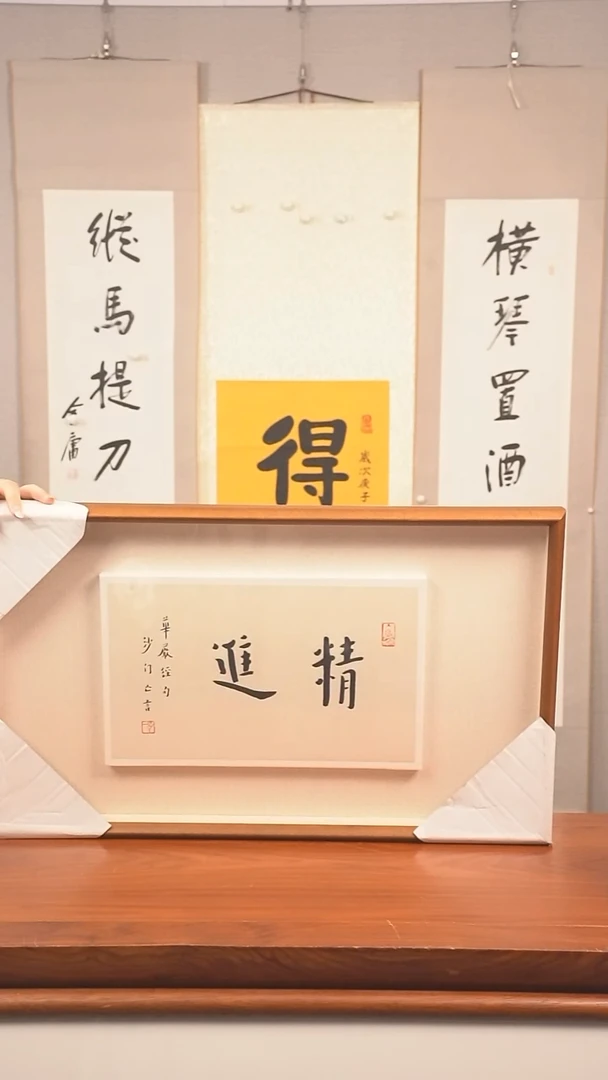 橫琴置酒
縱馬提刀
金庸
得
歲次庚子
精進
華嚴經句
沙門亡言